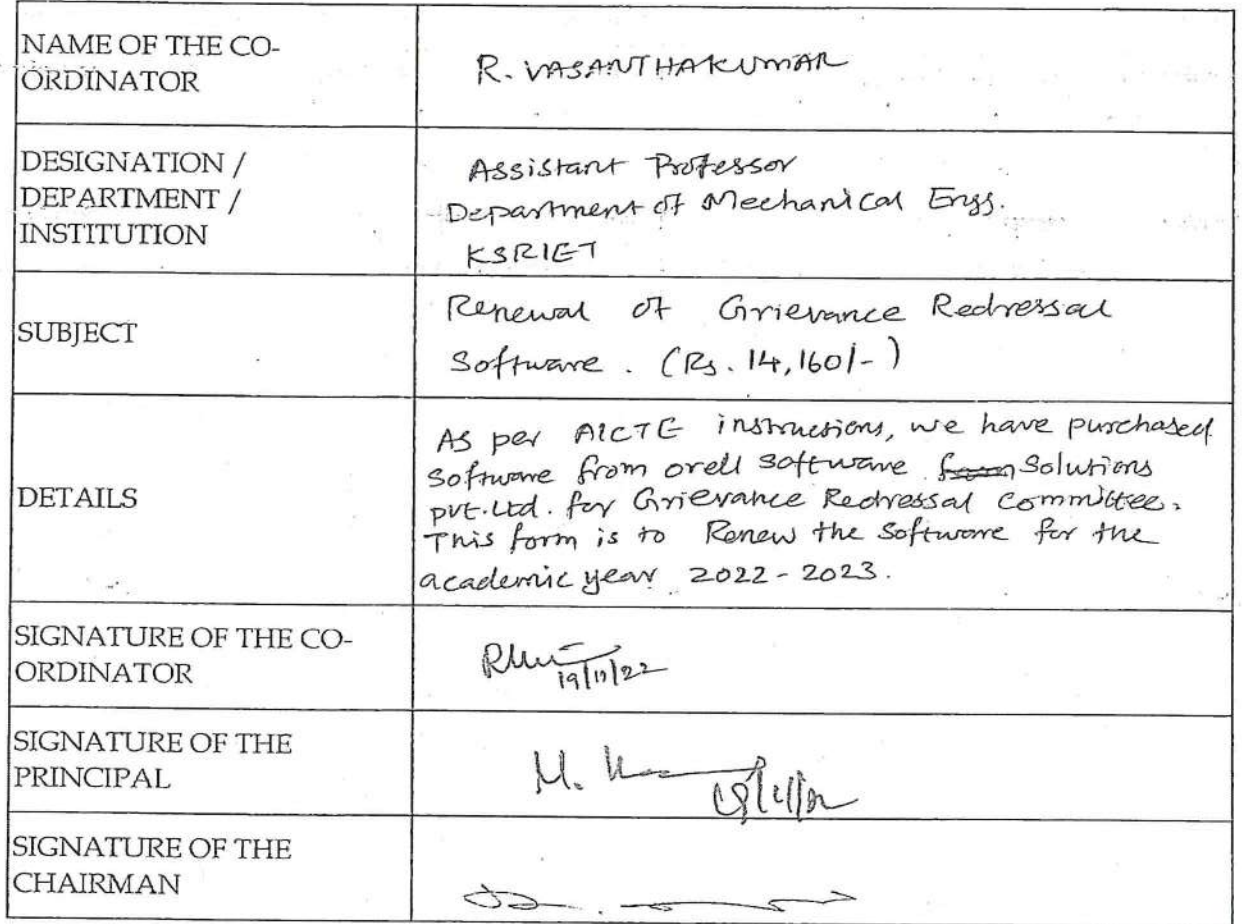 NAME OF THE CO-
ORDINATOR
R. VASANTHAKUMAR
DESIGNATION /
DEPARTMENT /
INSTITUTION
Assistant Professor
Department of Mechanical Engg.
KSRIET
SUBJECT
Renewal of Grievance Redressal
Software. (Rs. 14,160/-)
DETAILS
As per AICTE instructions, we have purchased
software from orell software Solutions
pvt. Ltd. for Grievance Redressal Committee.
This form is to Renew the software for the
academic year 2022-2023.
SIGNATURE OF THE CO-
ORDINATOR
SIGNATURE OF THE
PRINCIPAL
M.
SIGNATURE OF THE
CHAIRMAN